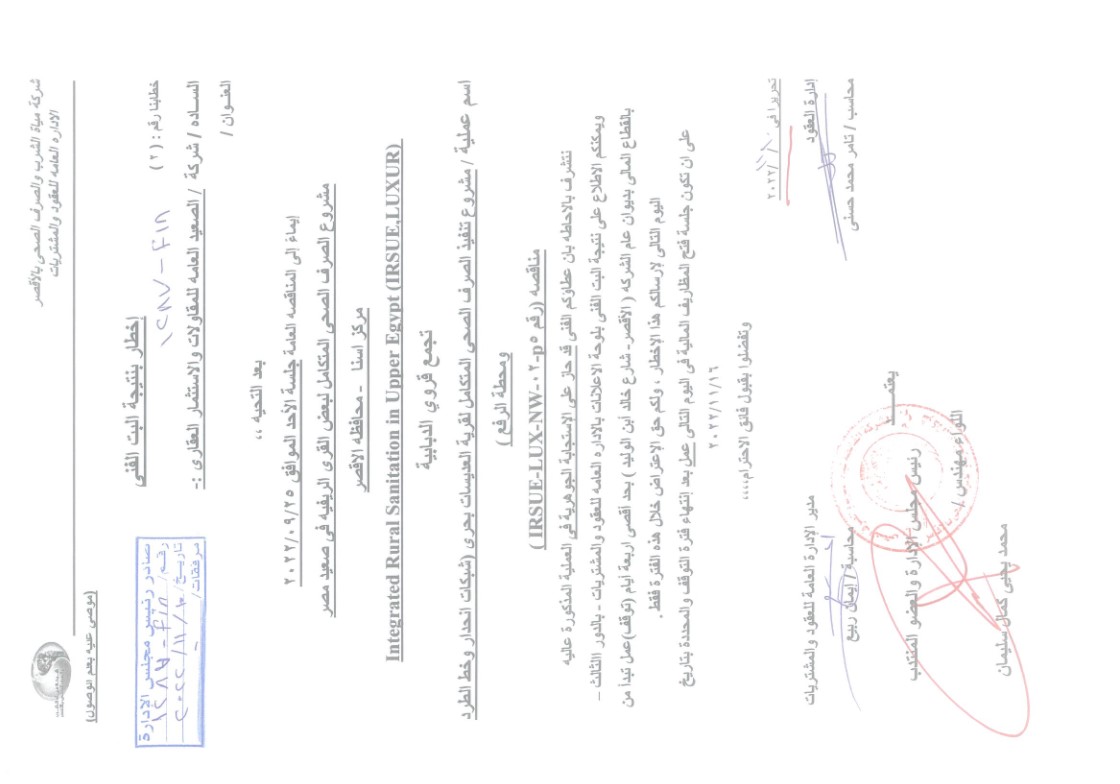 شركة مياة الشرب والصرف الصحى بالأقصر
الاداره العامه للعقود والمشتريات
(موصى عليه بعلم الوصول)
صادر رئيس مجلس الإدارة
رقم /
تاريخ / ٢٠٢٢/١١/١٠
مرفقات /
إخطار بنتيجة البت الفنى
خطابنا رقم : ( ٢ )
الساده / شركة / الصعيد العامه للمقاولات والاستثمار العقارى :-
العنوان /
بعد التحيه ،،
إيماءً إلى المناقصه العامة جلسة الأحد الموافق ٢٠٢٢/٠٩/٢٥
مشروع الصرف الصحى المتكامل لبعض القرى الريفيه فى صعيد مصر
مركز اسنا - محافظه الاقصر
Integrated Rural Sanitation in Upper Egypt (IRSUE,LUXUR)
تجمع قروي الدبابية
اسم عملية / مشروع تنفيذ الصرف الصحى المتكامل لقرية العديسات بحرى (شبكات انحدار وخط الطرد
ومحطة الرفع )
مناقصه (رقم IRSUE-LUX-NW-٠٢-p٥ )
نتشرف بالاحاطه بان عطاؤكم الفنى قد حاز على الاستجابة الجوهرية فى العملية المذكورة عاليه
ويمكنكم الاطلاع على نتيجة البت الفنى بلوحة الاعلانات بالاداره العامه للعقود والمشتريات - بالدور الثالث -
بالقطاع المالى بديوان عام الشركه ( الأقصر- شارع خالد ابن الوليد ) بحد أقصى اربعة أيام (توقف)عمل تبدأ من
اليوم التالى لإرسالكم هذا الإخطار ، ولكم حق الإعتراض خلال هذه الفترة فقط .
على ان تكون جلسة فتح المظاريف المالية فى اليوم التالى عمل بعد إنتهاء فترة التوقف والمحددة بتاريخ
٢٠٢٢/١١/١٦
وتفضلوا بقبول فائق الاحترام،،،،
تحريرا فى
إدارة العقود
محاسب / تامر محمد حسنى
مدير الإدارة العامة للعقود والمشتريات
محاسبة / إيمان ربيع
يعتمـــــد
رئيس مجلس الإدارة والعضو المنتدب
اللواء مهندس /
محمد يحيى كمال سليمان